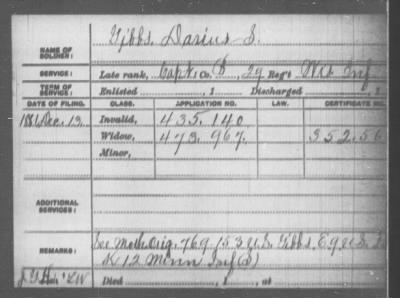 NAME OF SOLDIER: Gibbs, Darius S.
SERVICE: Late rank, Capt. Co. D, 29 Reg't Wis Inf
TERM OF SERVICE: Enlisted , 1 Discharged , 1
DATE OF FILING. CLASS. APPLICATION NO. LAW. CERTIFICATE NO.
1881, Dec. 13. Invalid, 435.140
Widow, 473.967. 352.56
Minor,
ADDITIONAL SERVICES:
REMARKS: See Moth. Orig. 769.153 Gibbs,
K 12 Minn Inf (S)
Died , 1 , at